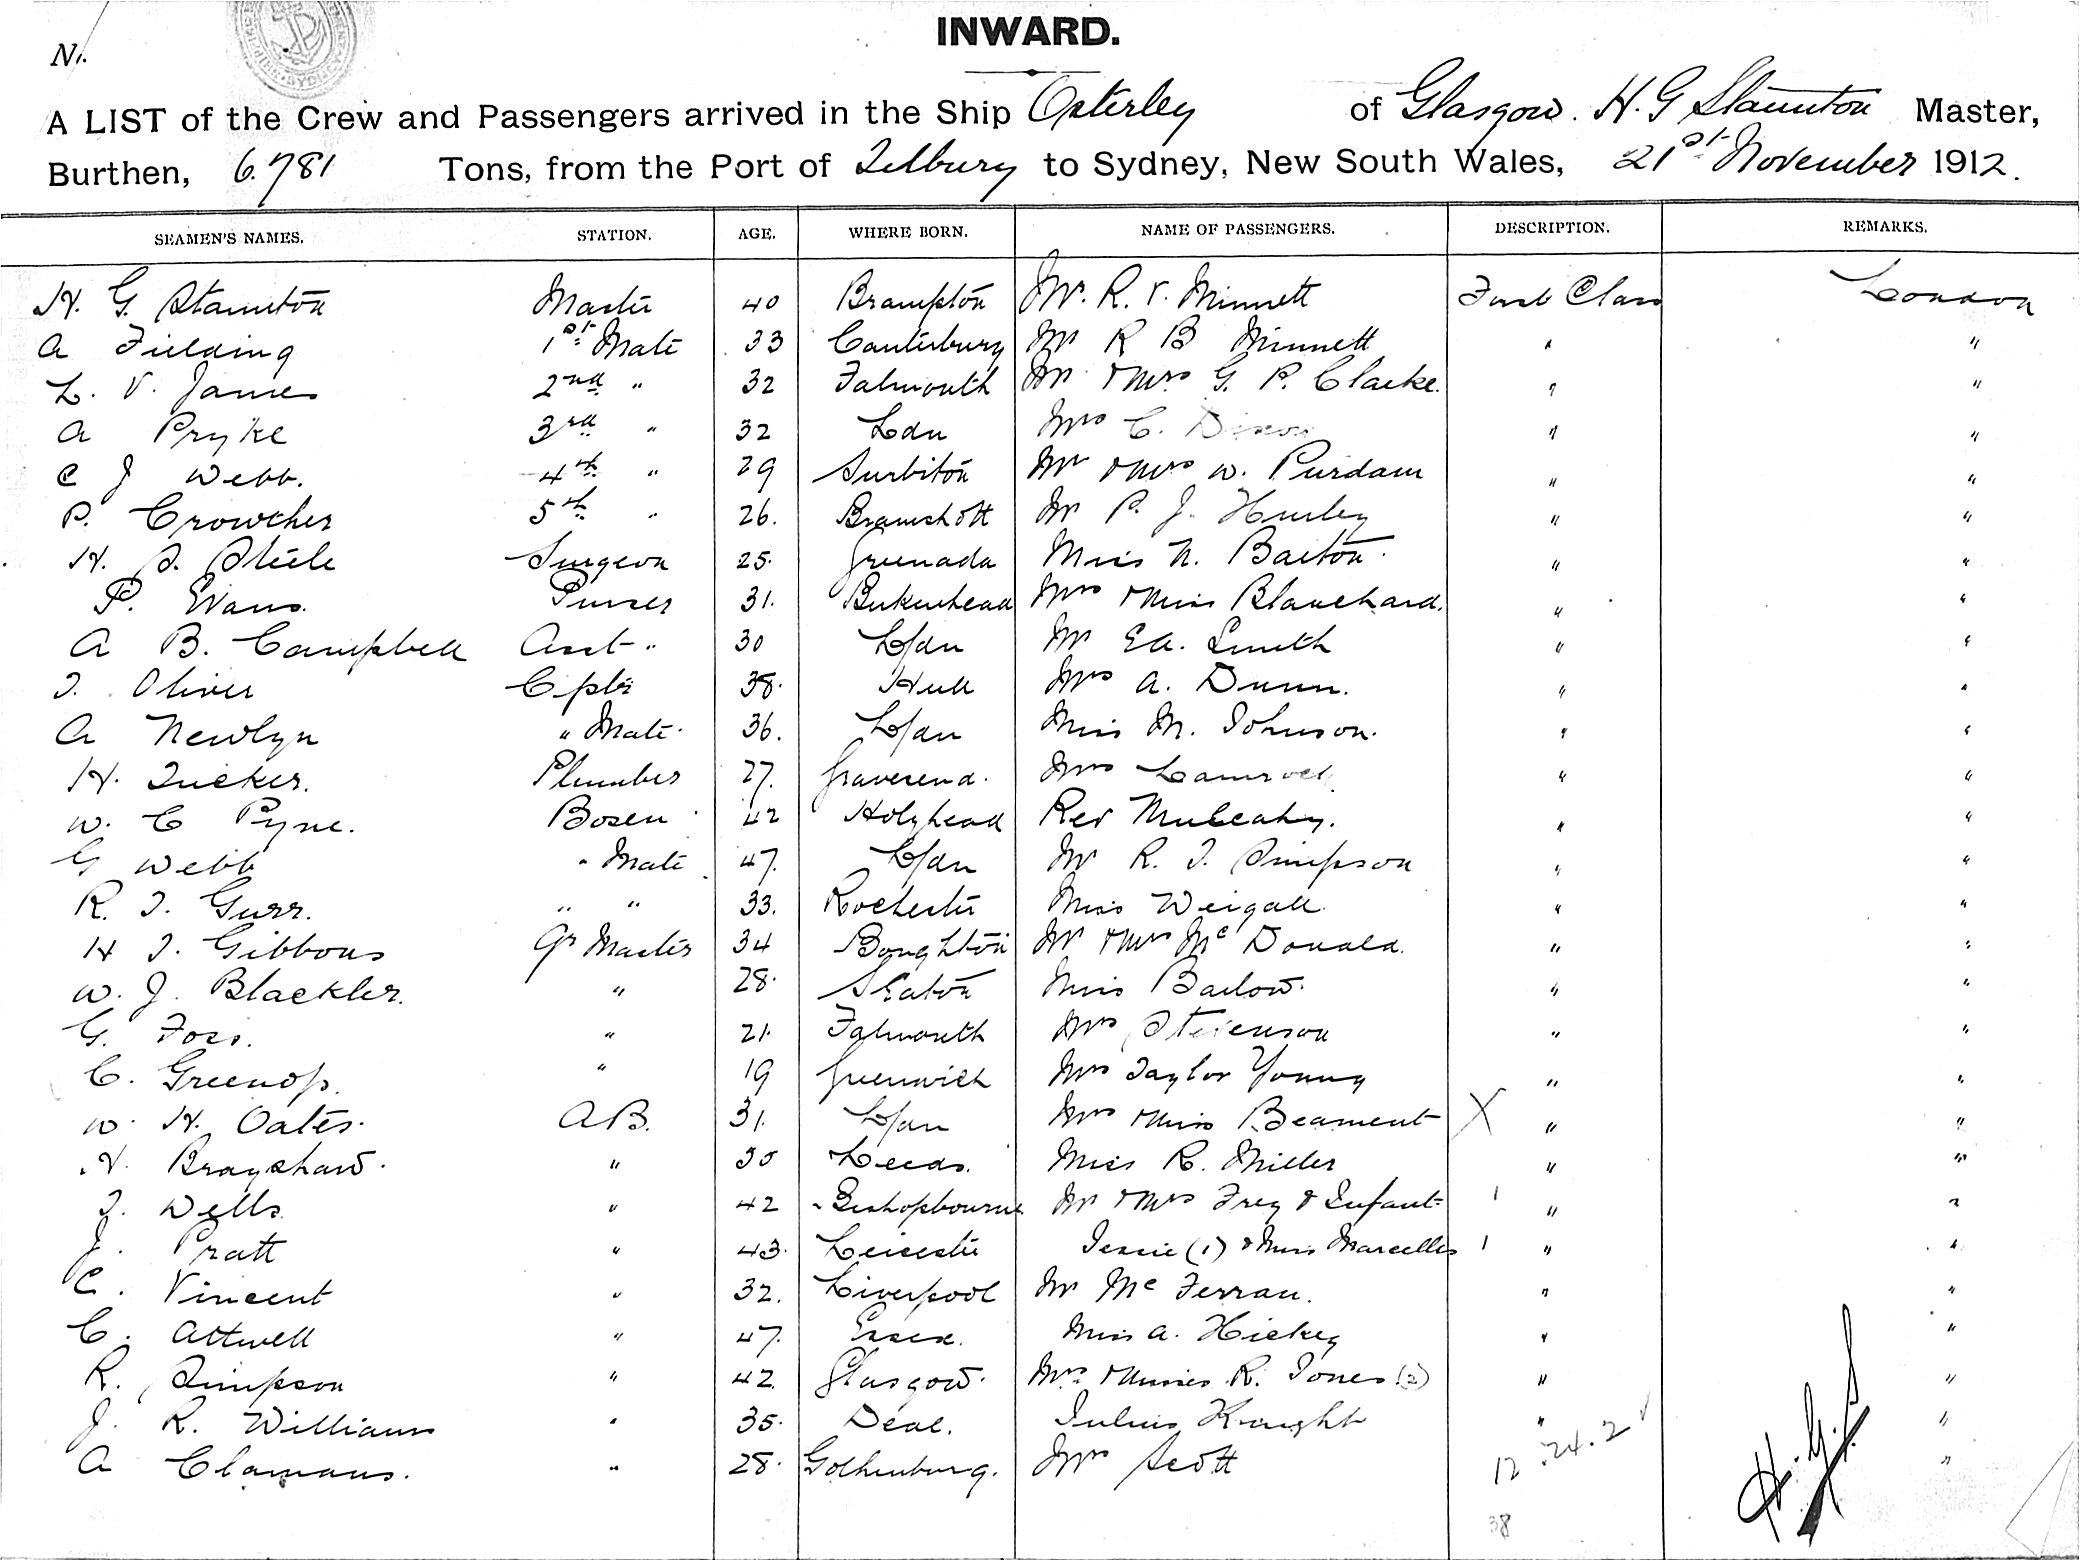 No.
INWARD.
A LIST of the Crew and Passengers arrived in the Ship Osterley of Glasgow. H. G Staunton Master,
Burthen, 6.781 Tons, from the Port of Tilbury to Sydney, New South Wales, 21st November 1912.
SEAMEN'S NAMES. STATION. AGE. WHERE BORN. NAME OF PASSENGERS. DESCRIPTION. REMARKS.
H. G. Staunton Master 40 Brampton Mr. R. V. Minnett First Class London
A Fielding 1st Mate 33 Canterbury Mr R B Minnett " "
L. V. James 2nd " 32 Falmouth Mr & Mrs G. P. Clarke. " "
A Pryke 3rd " 32 Ldn Mrs C. Dixon " "
C J Webb. 4th " 29 Surbiton Mr & Mrs W. Purdam " "
P. Crowther 5th " 26. Bramshott Mr P. J. Hurley " "
H. S. Steele Surgeon 25. Greenada Miss N. Barton. " "
P. Evans. Purser 31. Birkenhead Mrs & Miss Blanchard. " "
A B. Campbell Asst " 30 L/dn Mr E A. Smith " "
T. Oliver Cptr 38. Hull Mrs A. Dunn. " "
A Newlyn " Mate. 36. L/dn Miss M. Johnson. " "
H. Tucker. Plumber 27. Gravesend. Mrs " "
W. C Pyne. Bosen 42 Holyhead Rev Mulcahy. " "
G Webb " Mate 47. L/dn Mr R. T. Simpson " "
R. T. Gurr. " " 33. Rochester Miss Weigall. " "
H T. Gibbons Qr Master 34 Boughton Mr & Mrs McDonald. " "
W. J. Blackler. " 28. Seaton Miss Barlow. " "
G. Foss. " 21. Falmouth Mrs Stevenson " "
C. Greenop. " 19 Greenwich Mrs Taylor Young " "
W. H. Oates. A.B. 31. L/dn Mrs & Miss Beament X " "
N. Brayshaw. " 30 Leeds. Miss R. Miller " "
T. Wells. " 42 Bishopbourne Mr & Mrs Frey & Infant 1 " "
J. Pratt " 43. Leicester Jessie (1) & Miss Marcelles 1 " "
C. Vincent " 32. Liverpool Mr McFerran. " "
C. Attwell " 47. Essex. Miss A. Hickey " "
R. Simpson " 42. Glasgow. Mrs & Misses R. Jones (2) " "
J. R. Williams " 35. Deal. Julius Knight " "
A Clamans. " 28. Gothenburg. Mrs Scott 12 . 24 . 2 "
38
H.G.S